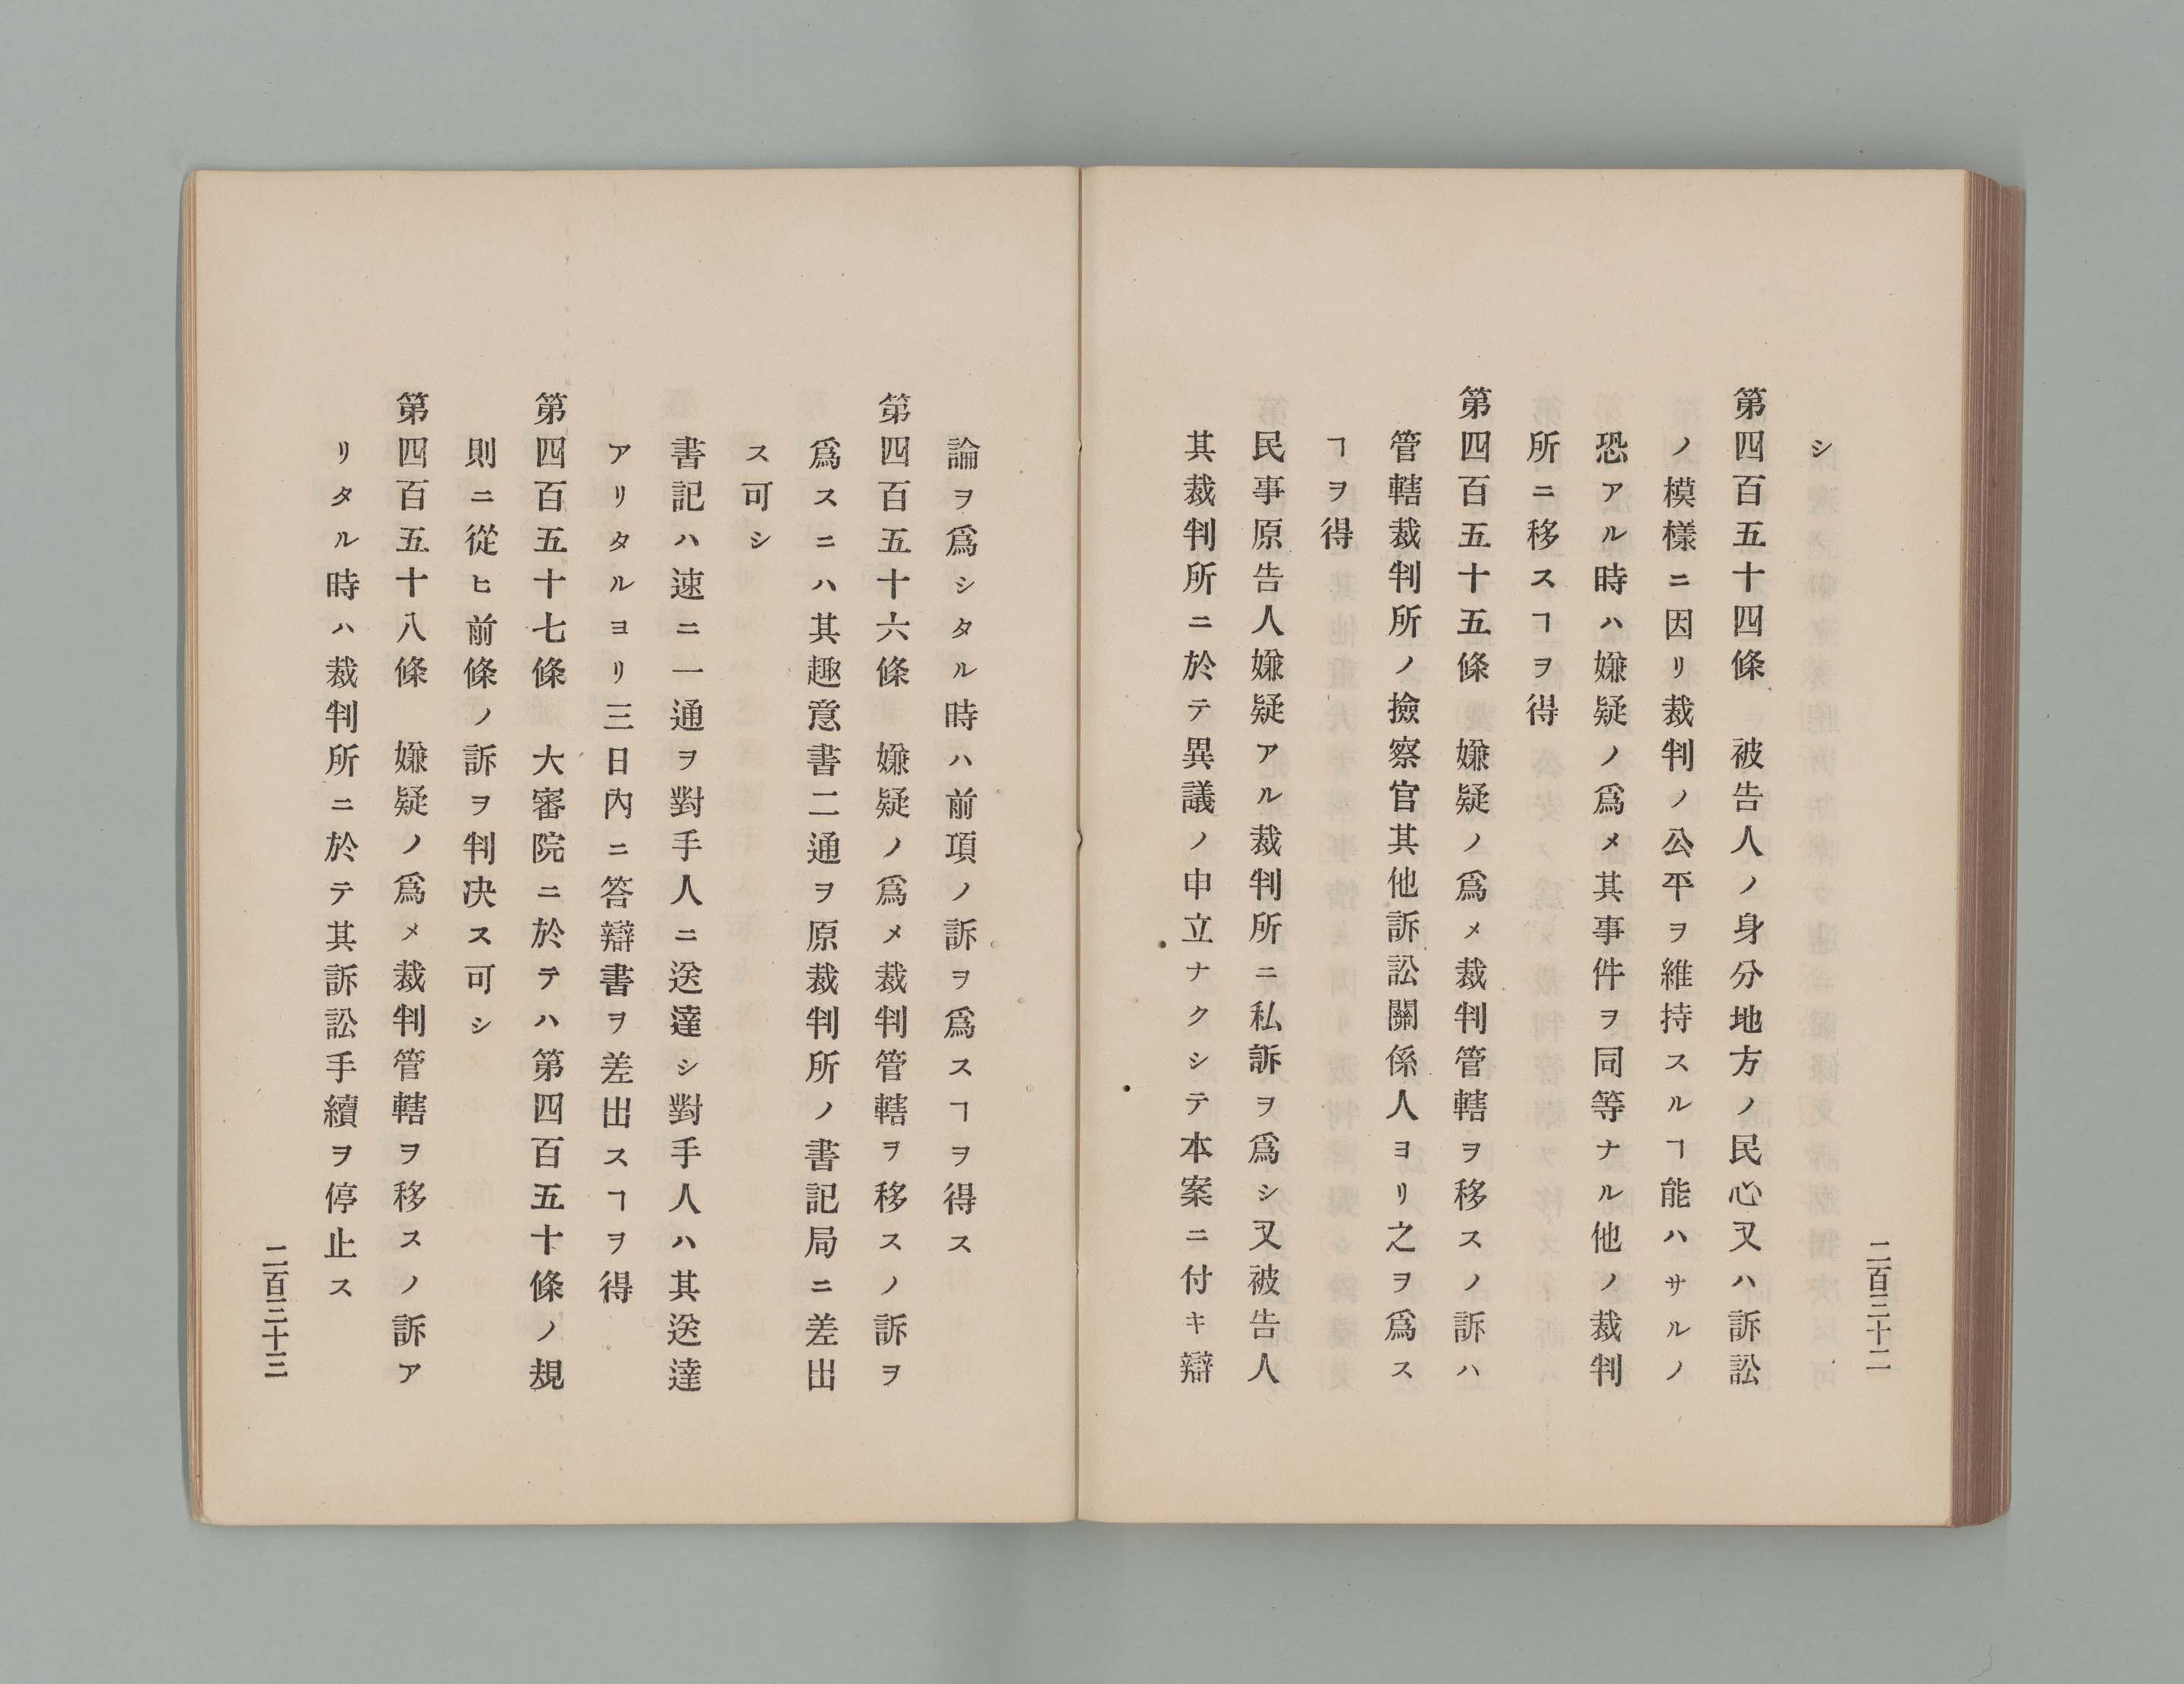 二百三十二
シ
第四百五十四條　被告人ノ身分地方ノ民心又ハ訴訟
ノ模樣ニ因リ裁判ノ公平ヲ維持スルヿ能ハサルノ
恐アル時ハ嫌疑ノ爲メ其事件ヲ同等ナル他ノ裁判
所ニ移スヿヲ得
第四百五十五條　嫌疑ノ爲メ裁判管轄ヲ移スノ訴ハ
管轄裁判所ノ撿察官其他訴訟關係人ヨリ之ヲ爲ス
ヿヲ得
民事原告人嫌疑アル裁判所ニ私訴ヲ爲シ又被告人
其裁判所ニ於テ異議ノ申立ナクシテ本案ニ付キ辯
論ヲ爲シタル時ハ前項ノ訴ヲ爲スヿヲ得ス
第四百五十六條　嫌疑ノ爲メ裁判管轄ヲ移スノ訴ヲ
爲スニハ其趣意書二通ヲ原裁判所ノ書記局ニ差出
ス可シ
書記ハ速ニ一通ヲ對手人ニ送達シ對手人ハ其送達
アリタルヨリ三日内ニ答辯書ヲ差出スヿヲ得
第四百五十七條　大審院ニ於テハ第四百五十條ノ規
則ニ從ヒ前條ノ訴ヲ判决ス可シ
第四百五十八條　嫌疑ノ爲メ裁判管轄ヲ移スノ訴ア
リタル時ハ裁判所ニ於テ其訴訟手續ヲ停止ス
二百三十三